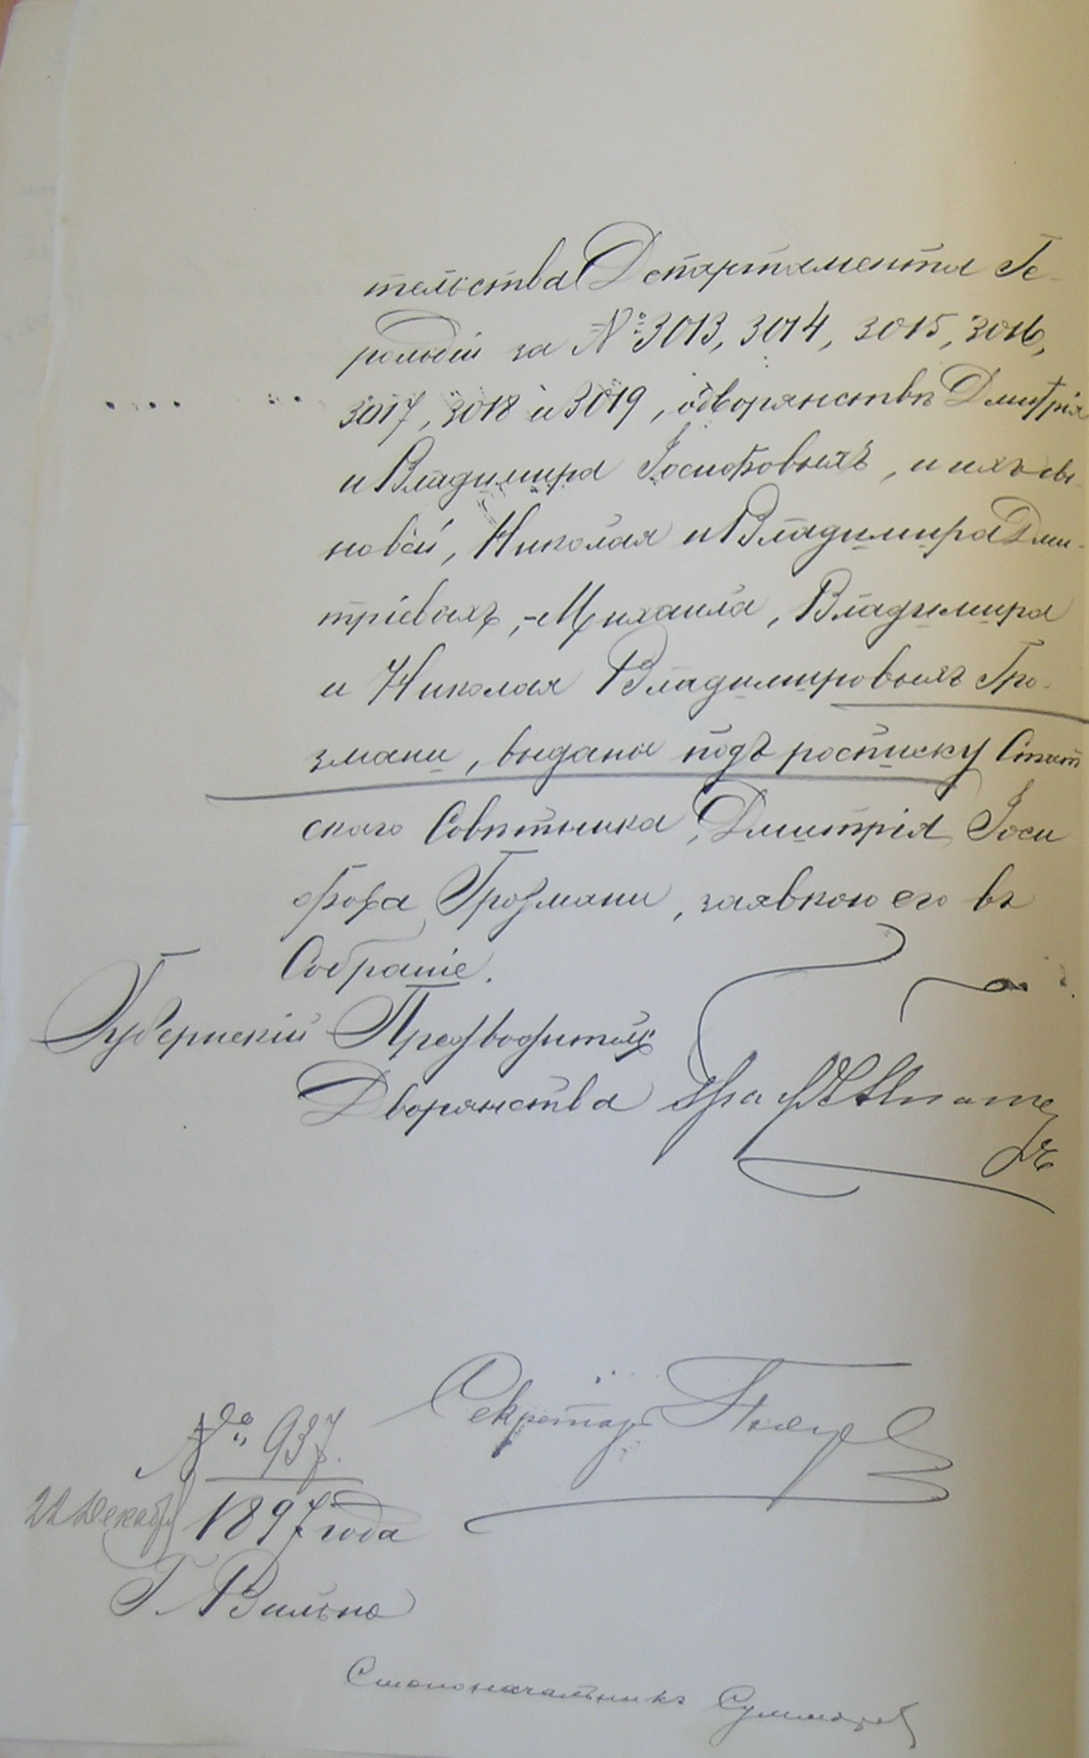 тельства Департамента Ге-
рольдіи за № 3013, 3014, 3015, 3016,
3017, 3018 и 3019, о дворянствѣ Дмитрія
и Владиміра Іосифовыхъ, и ихъ сы-
новей, Николая и Владиміра Дми-
тріевыхъ, - Михаила, Владиміра
и Николая Владиміровыхъ Гро-
змани, выданы подъ росписку Статс
скаго Совѣтника Дмитрія Іоси
фова Грозмани, заявкою его въ
Собраніе.
Губернскій Предводитель
Дворянства Графъ
Секретарь
№ 937.
22 Декабря 1897 года
Г. Вильна
Столоначальникъ